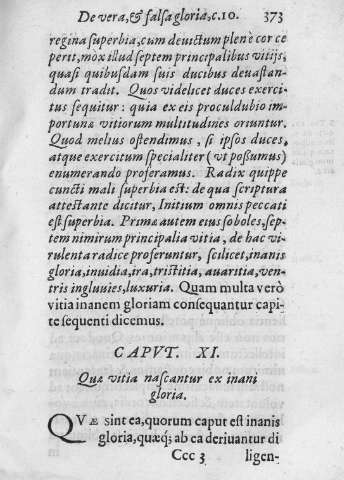 De vera, & falsa gloria, c. 10. 373
regina superbia, cum deuictum plenè cor ce
perit, mox illud septem principalibus vitijs,
quasi quibusdam suis ducibus deuastan-
dum tradit. Quos videlicet duces exerci-
tus sequitur: quia ex eis proculdubio im-
portunæ vitiorum multitudines oriuntur.
Quod melius ostendimus, si ipsos duces,
atque exercitum specialiter (vt possumus)
enumerando proferamus. Radix quippe
cuncti mali superbia est: de qua scriptura
attestante dicitur, Initium omnis peccati
est superbia. Primæ autem eius soboles, sep-
tem nimirum principalia vitia, de hac vi-
rulenta radice proferuntur, scilicet, inanis
gloria, inuidia, ira, tristitia, auaritia, ven-
tris ingluuies, luxuria. Quam multa verò
vitia inanem gloriam consequantur capi-
te sequenti dicemus.
CAPVT. XI.
Quæ vitia nascantur ex inani
gloria.
QVÆ sint ea, quorum caput est inanis
gloria, quæq; ab ea deriuantur di
Ccc 3 ligen-